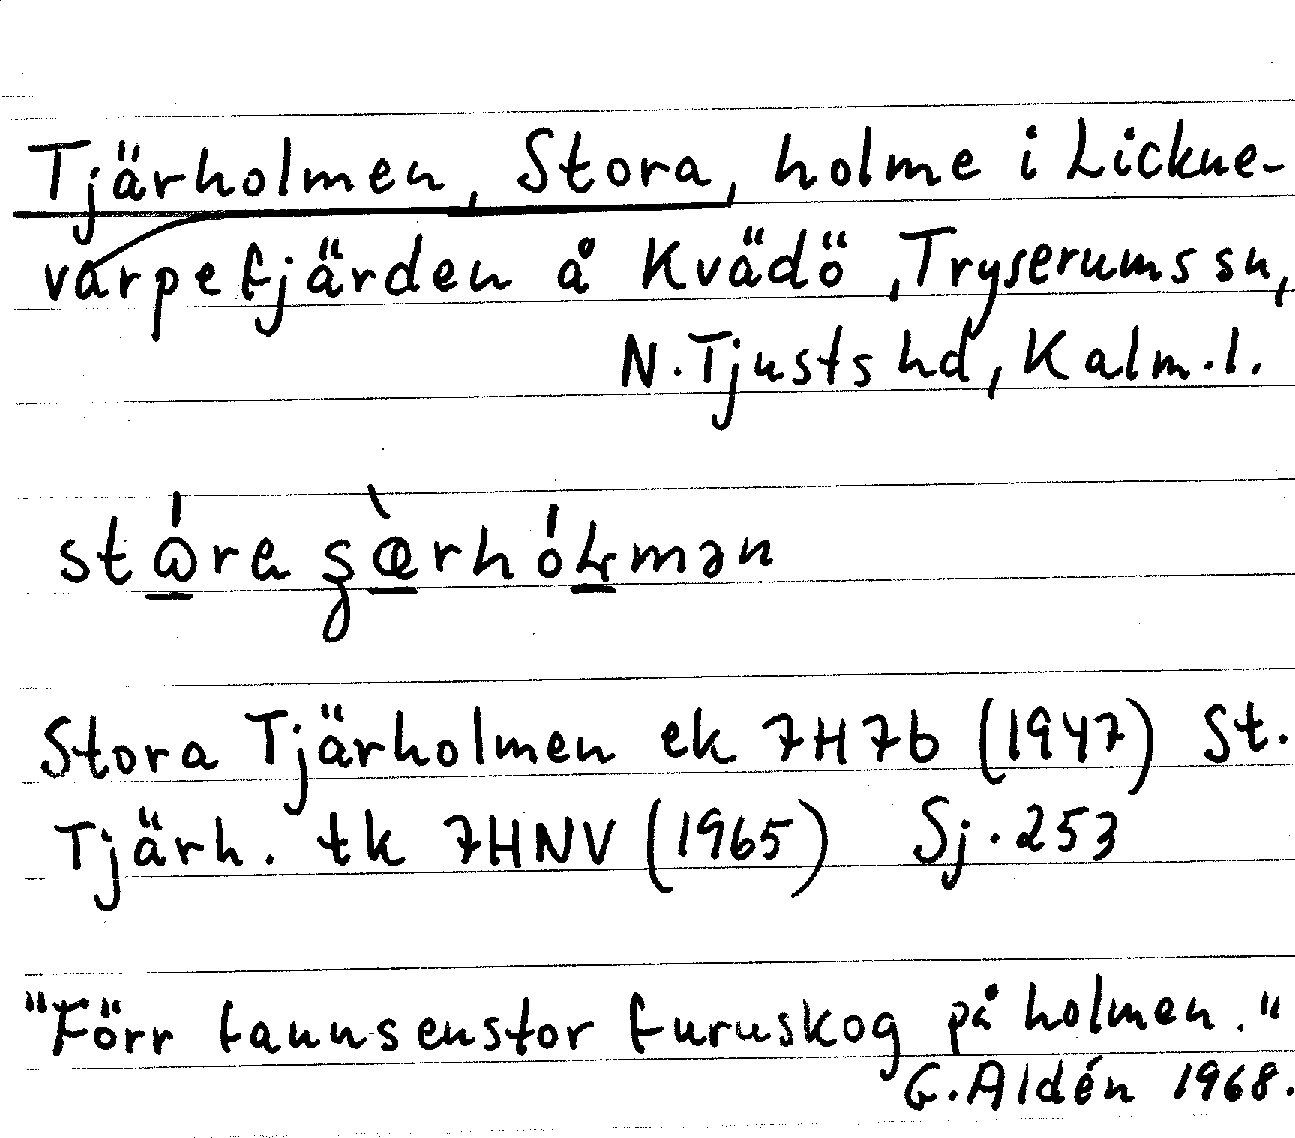 Tjärholmen, Stora, holme i Lickne-
varpefjärden å Kvädö, Tryserums sn,
N. Tjusts hd, Kalm. l.
Stora Tjärholmen ek 7H7b (1947) St.
Tjärh. tk 7HNV (1965) Sj. 253
"Förr fanns en stor furuskog på holmen."
G. Aldén 1968.